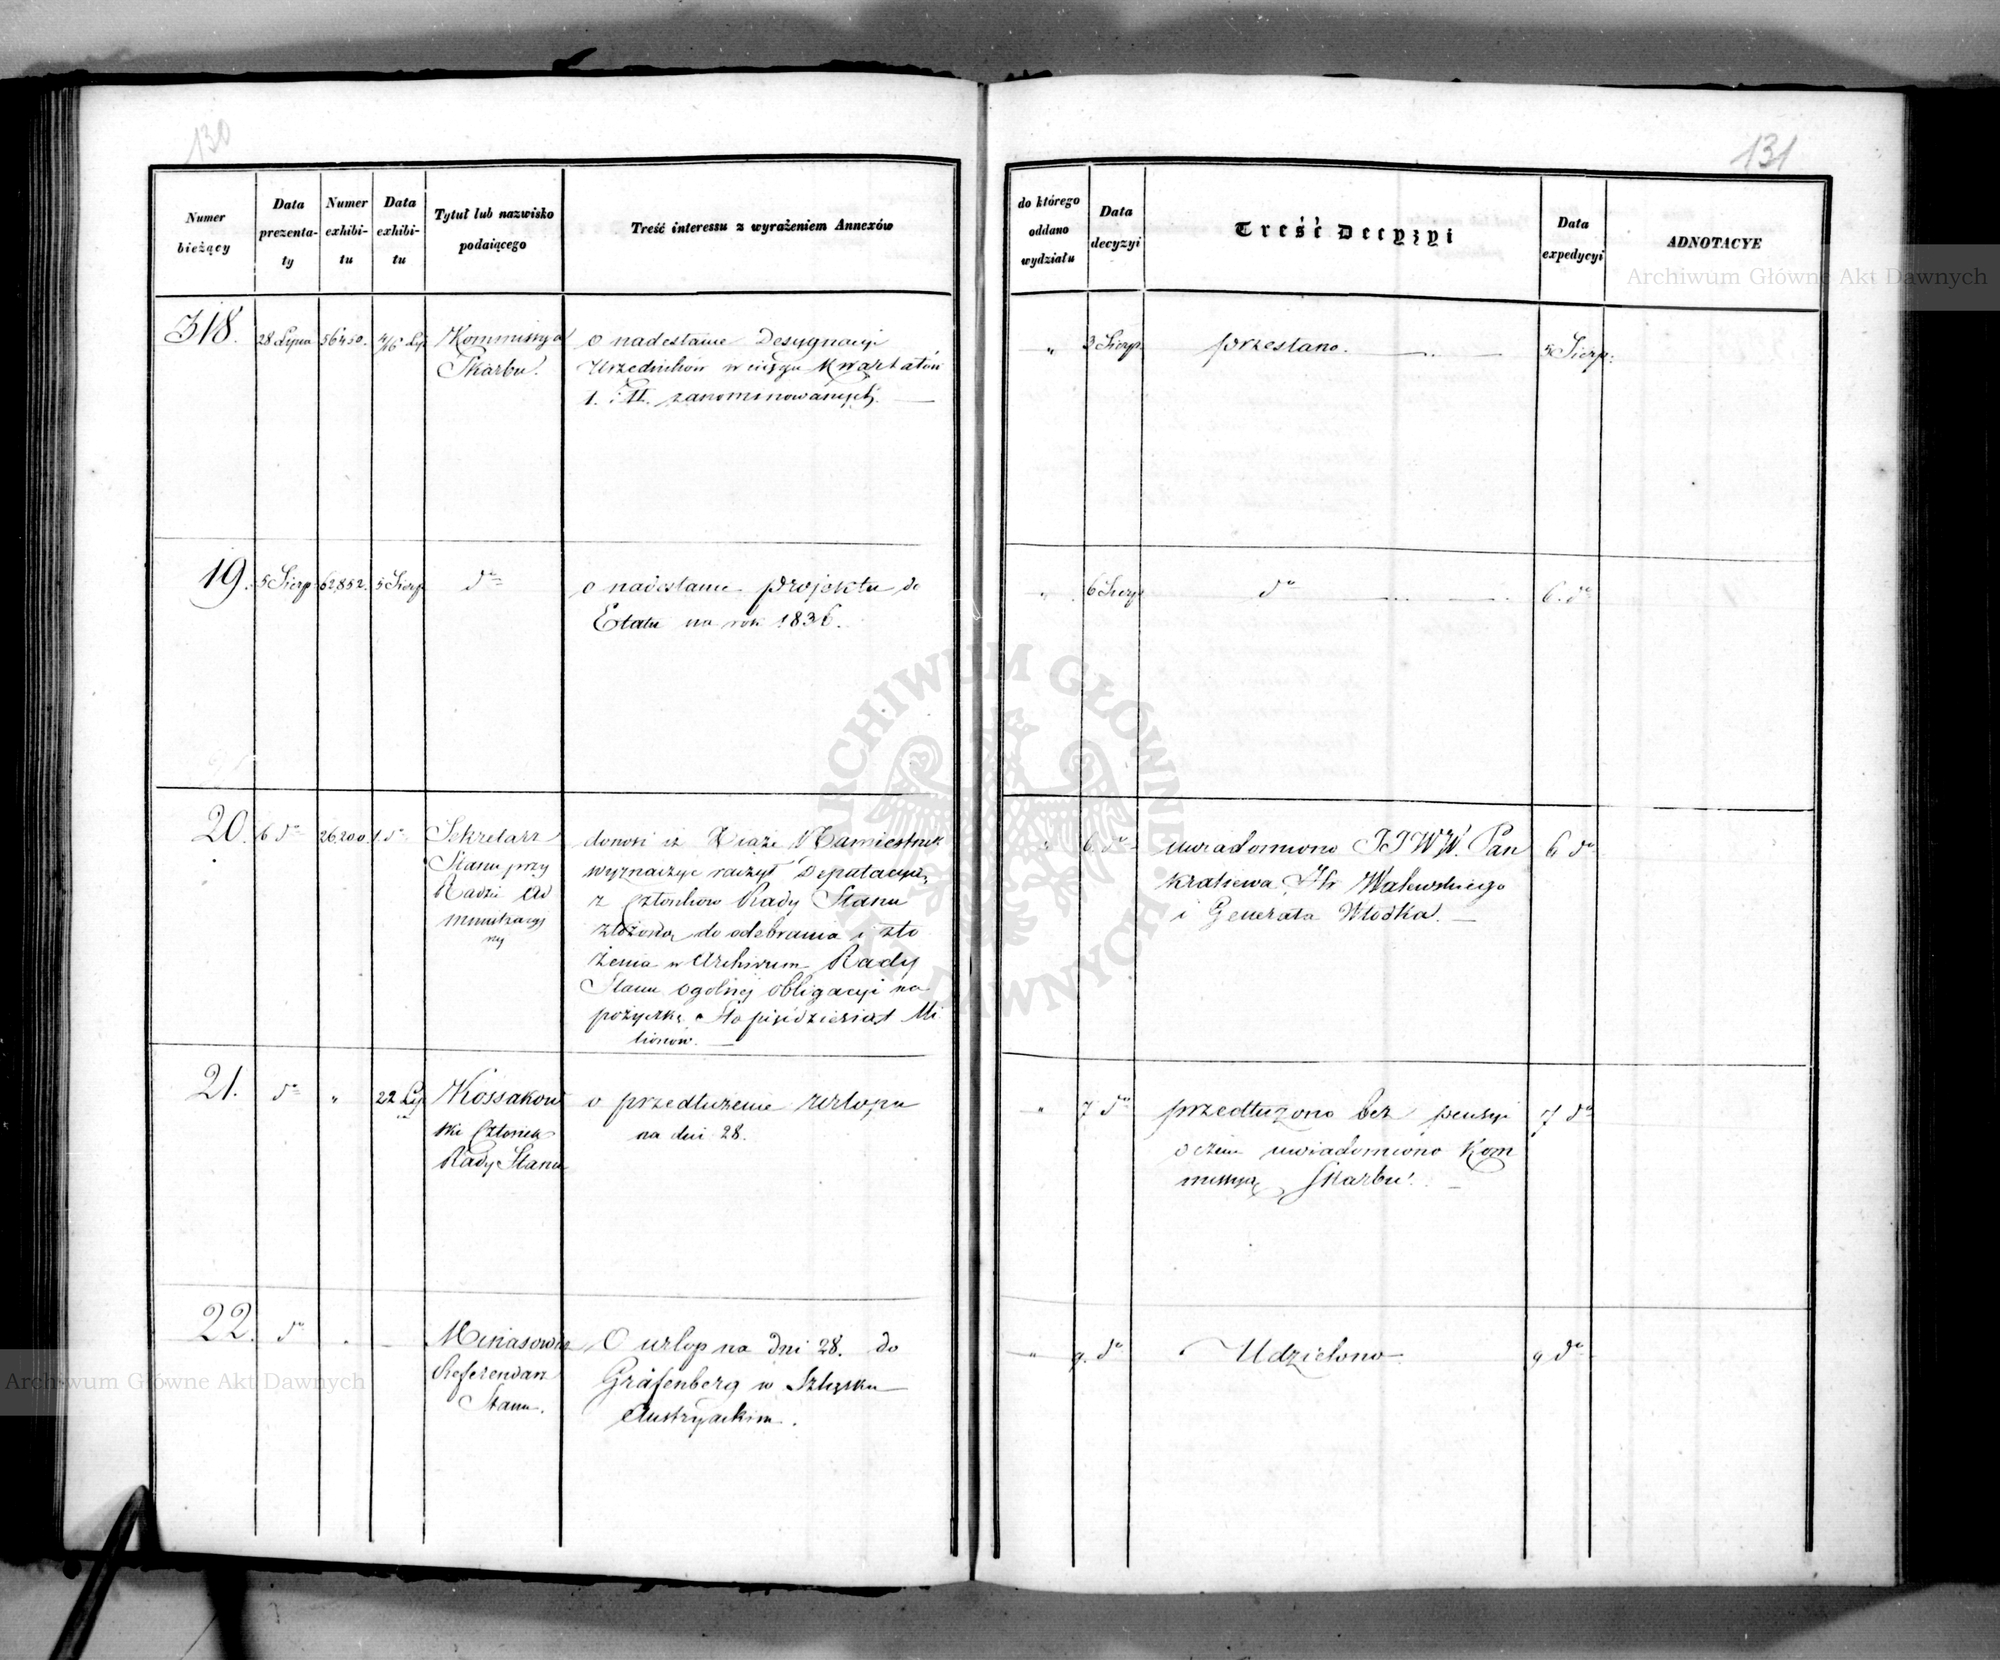 130
131
Numer bieżący
Data prezentaty
Numer exhibitu
Data exhibitu
Tytuł lub nazwisko podaiącego
Treść interessu z wyrażeniem Annexów
do którego oddano wydziału
Data decyzyi
Treść Decyzyi
Data expedycyi
ADNOTACYE
318.
28 Lipca
56450.
4/16 Lip
Kommissya
Skarbu.
o nadesłanie Desygnacyi
Urzędników w ciągu Kwartałów
I. i II. zanominowanych.
"
3 Sierp.
przesłano.
5 Sierp:
19.
5 Sierp
62852.
5 Sierp
do
o nadesłanie projektu do
Etatu na rok 1836.
"
6 Sierp
do
6. do
20.
6 do
26200.
1. do
Sekretarz
Stanu przy
Radzie Ad
ministracyj
ney
donosi iż Xiąże Namiestnik
wyznaczyć raczył Deputacyą,
z Członków Rady Stanu
złożoną do odebrania i zło
żenia w Archiwum Rady
Stanu ogólnej obligacyi na
pożyczkę Sto pięćdziesiąt Mi
lionów.
"
6 do
uwiadomiono JJWW. Pan
kratiewa, Hr Walewskiego
i Generała Włodka.
6 do
21.
do
"
22 Lip
Kossakow
ski Członek
Rady Stanu
o przedłużenie urlopu
na dni 28.
"
7 do
przedłużono bez pensyi
o czem uwiadomiono Kom
missyą Skarbu.
7 do
22.
do
Miniasowicz
Referendarz
Stanu.
O urlop na dni 28. do
Gräfenberg w Szląsku
Austryackim.
"
9. do
Udzielono
9 do
Archiwum Główne Akt Dawnych
ARCHIWUM GŁÓWNE AKT DAWNYCH
Archiwum Główne Akt Dawnych